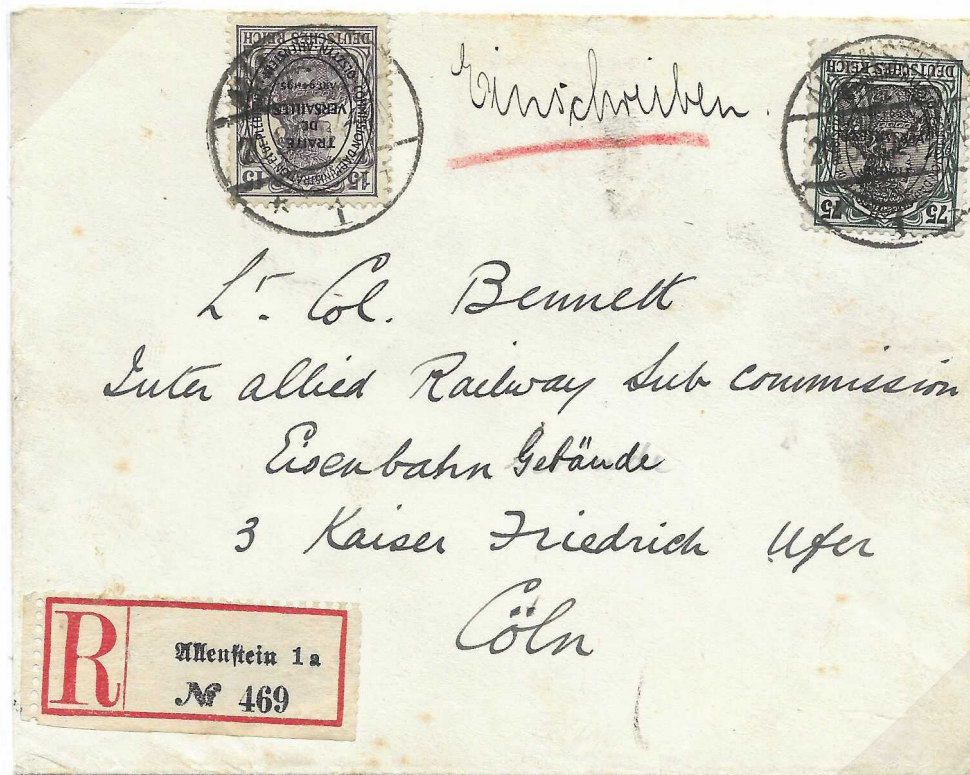 Einschreiben.
DEUTSCHES REICH
TRAITÉ
DE
VERSAILLES
ART. 94 et 95
15 15
DEUTSCHES REICH
75 75
1
1
Lt. Col. Bennett
Inter allied Railway Sub commission
Eisenbahn Gebäude
3 Kaiser Friedrich Ufer
Cöln
R
Allenstein 1 a
№ 469